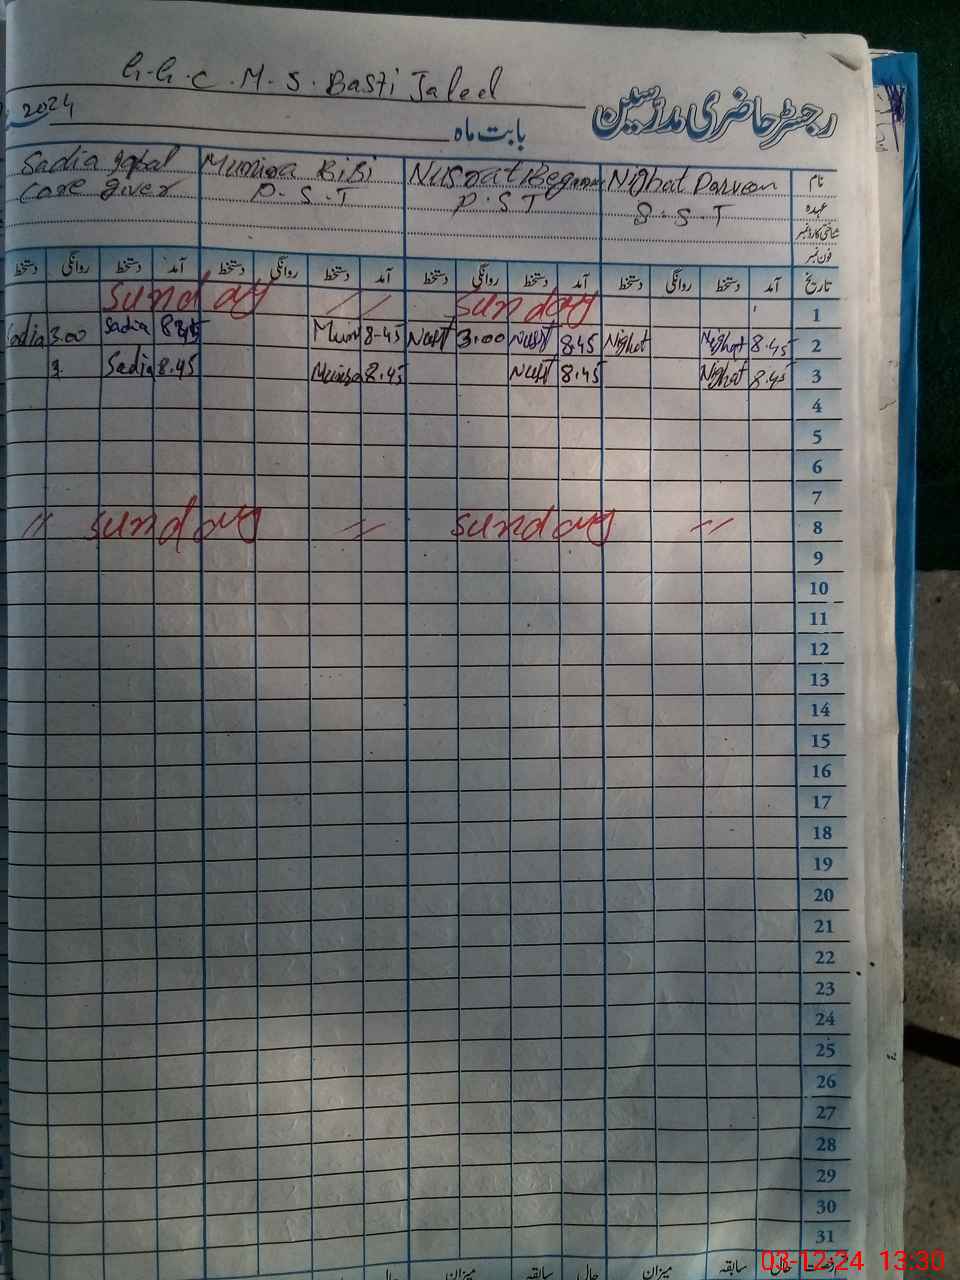 G.G.C.M.S. Basti Jaleel
رجسٹر حاضری مدرسین
2024
بابت ماہ
نام Nighat Parveen Nusrat Begum Munira BiBi Sadia Iqbal
عہدہ S.S.T P.S.T P.S.T Care giver
شناختی کارڈ نمبر
فون نمبر
تاریخ آمد دستخط روانگی دستخط آمد دستخط روانگی دستخط آمد دستخط روانگی دستخط آمد دستخط روانگی دستخط
1 Sunday // Sunday
2 8.45 Nighat Nighat 8.45 Nusrt 3.00 Nusrt 8-45 Munir 8.45 Sadia 3.00 Sadia
3 8.45 Nighat 8.45 Nusrt 8.45 Munira 8.45 Sadia 3.
4
5
6
7
8 // Sunday // Sunday //
9
10
11
12
13
14
15
16
17
18
19
20
21
22
23
24
25
26
27
28
29
30
31
حالی سابقہ میزان حالی سابقہ میزان حالی
03-12-24 13:30